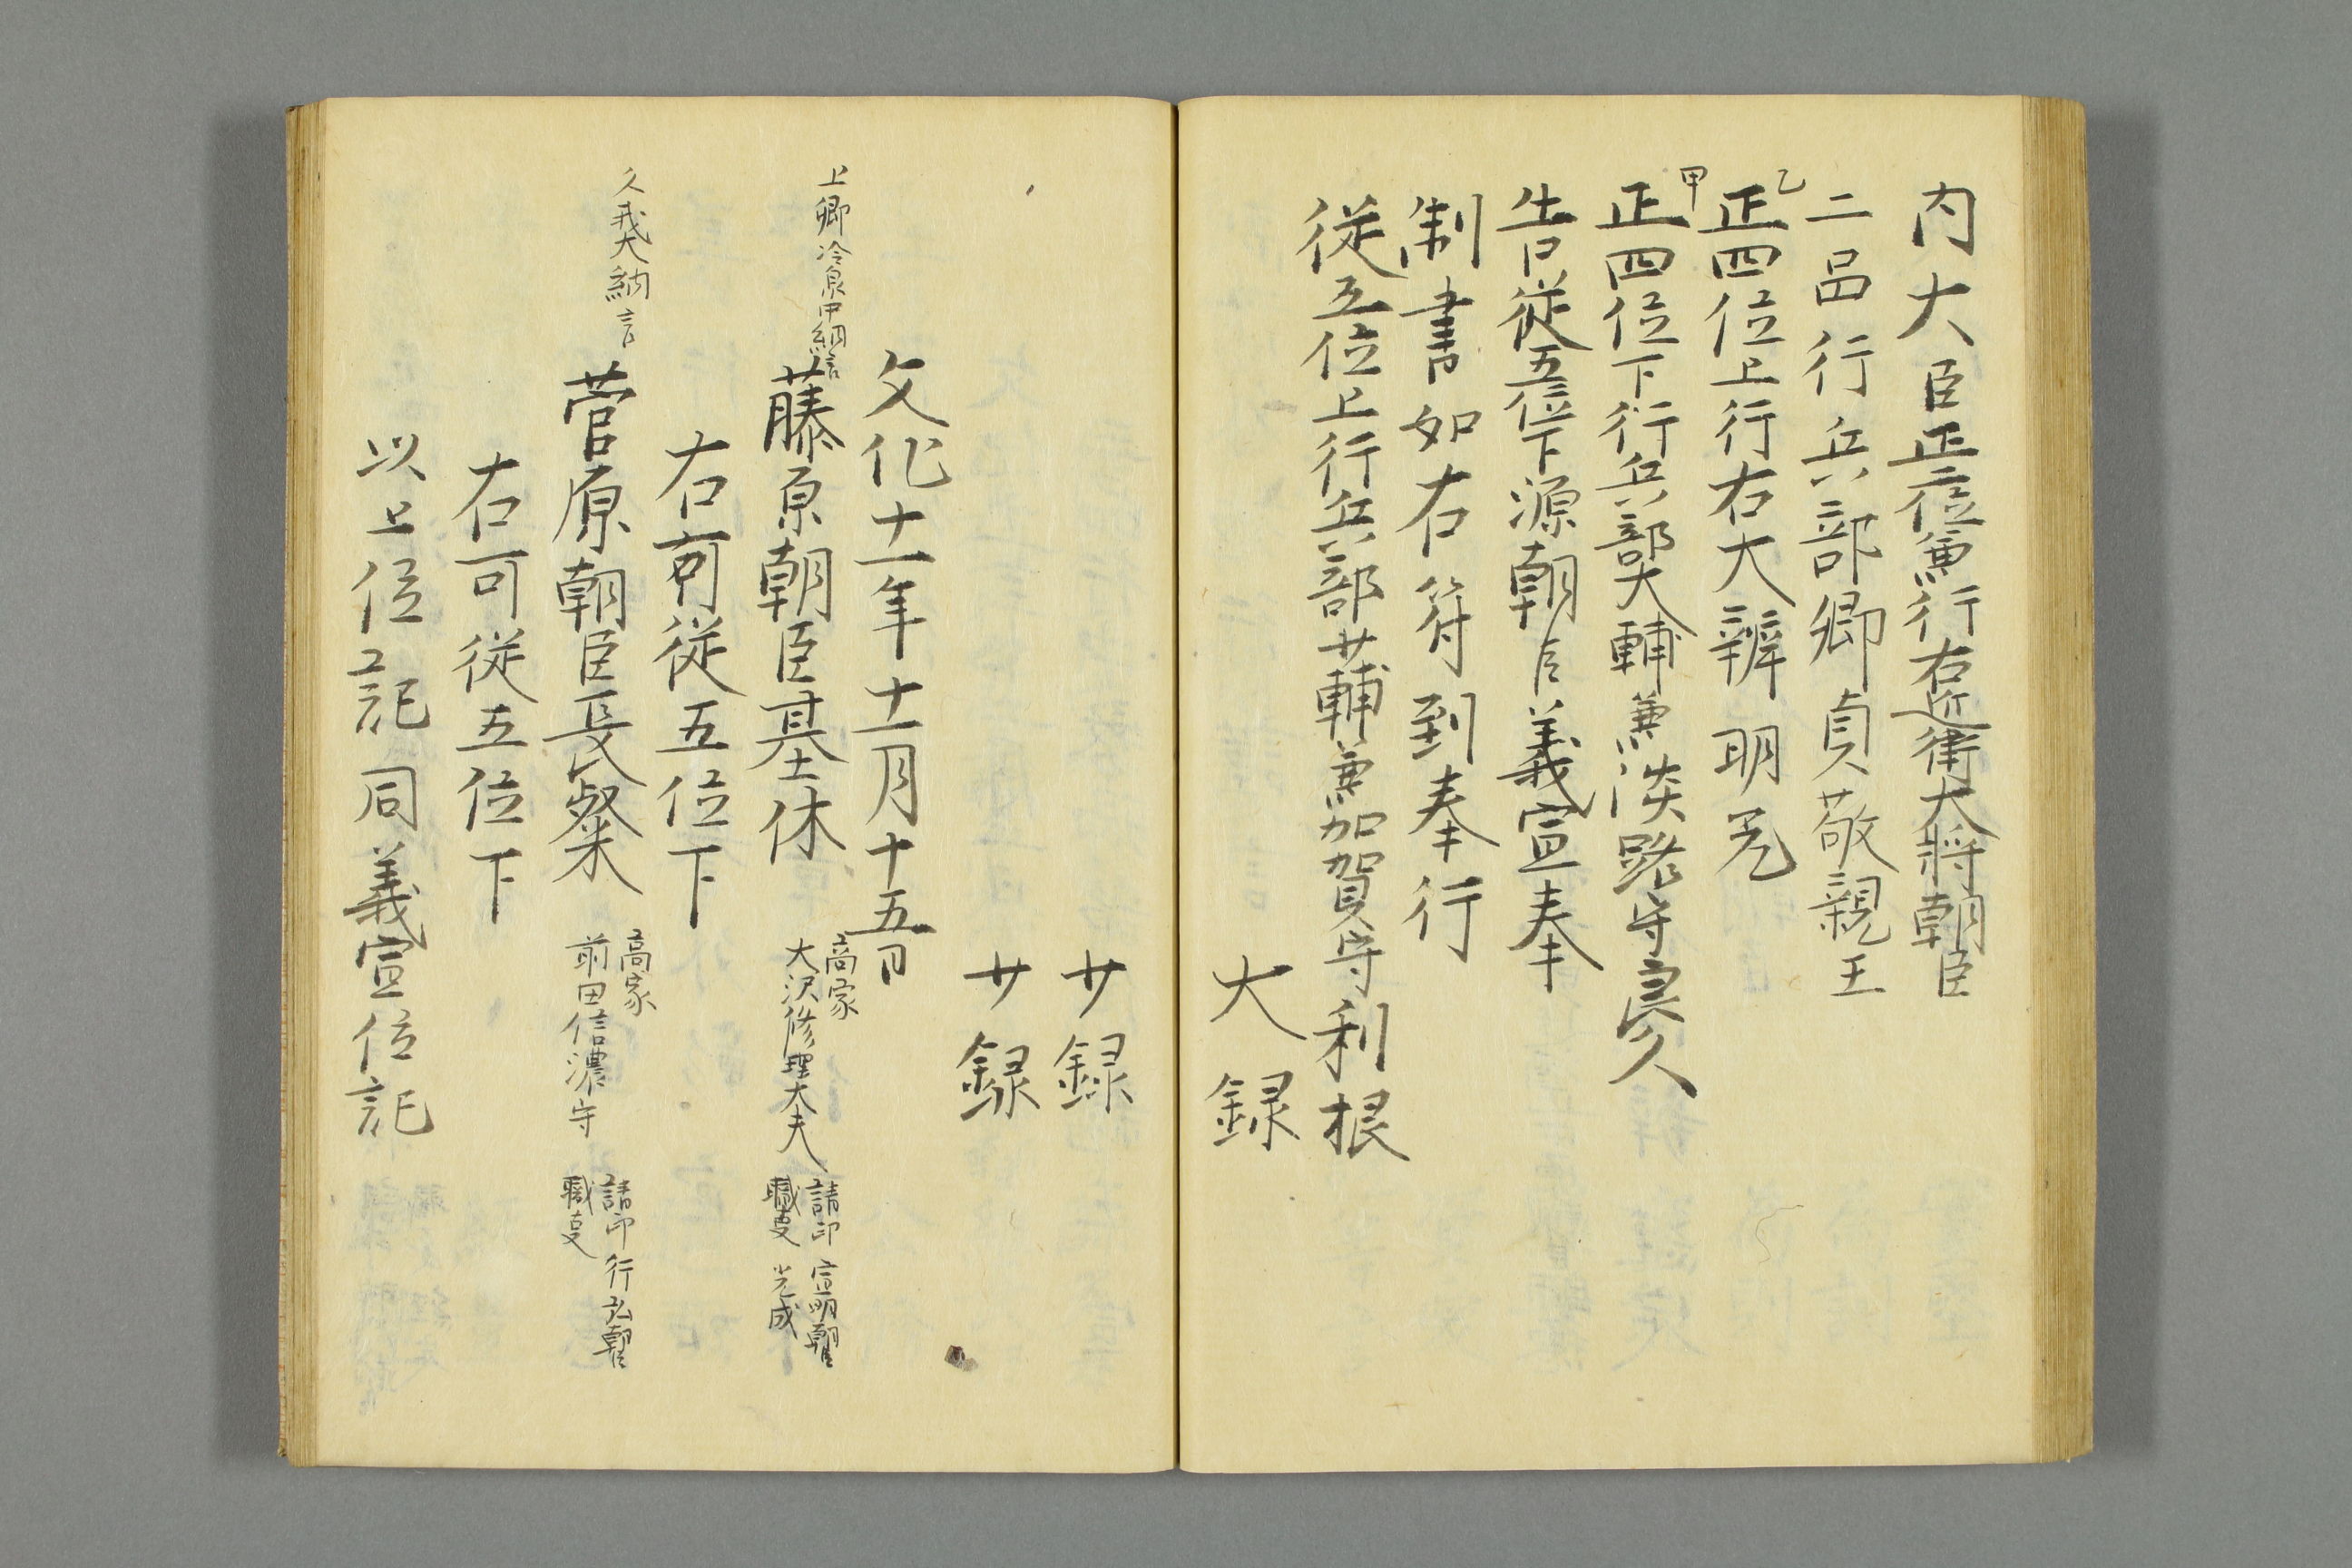 内大臣正二位兼行右近衛大将朝臣
二品行兵部卿貞敬親王
乙
正四位上行右大辨明光
甲
正四位下行兵部大輔兼淡路守良久
告従五位下源朝臣義宣奉
制書如右符到奉行
従五位上行兵部少輔兼加賀守利根
大録
少録
少録
文化十一年十一月十五日
上卿冷泉中納言
藤原朝臣基休
高家
大沢修理大夫
請印 宣明朝臣
職事 光成
右可従五位下
久我大納言
菅原朝臣長粲
高家
前田信濃守
請印 行弘朝臣
職事
右可従五位下
以上位記同義宣位記